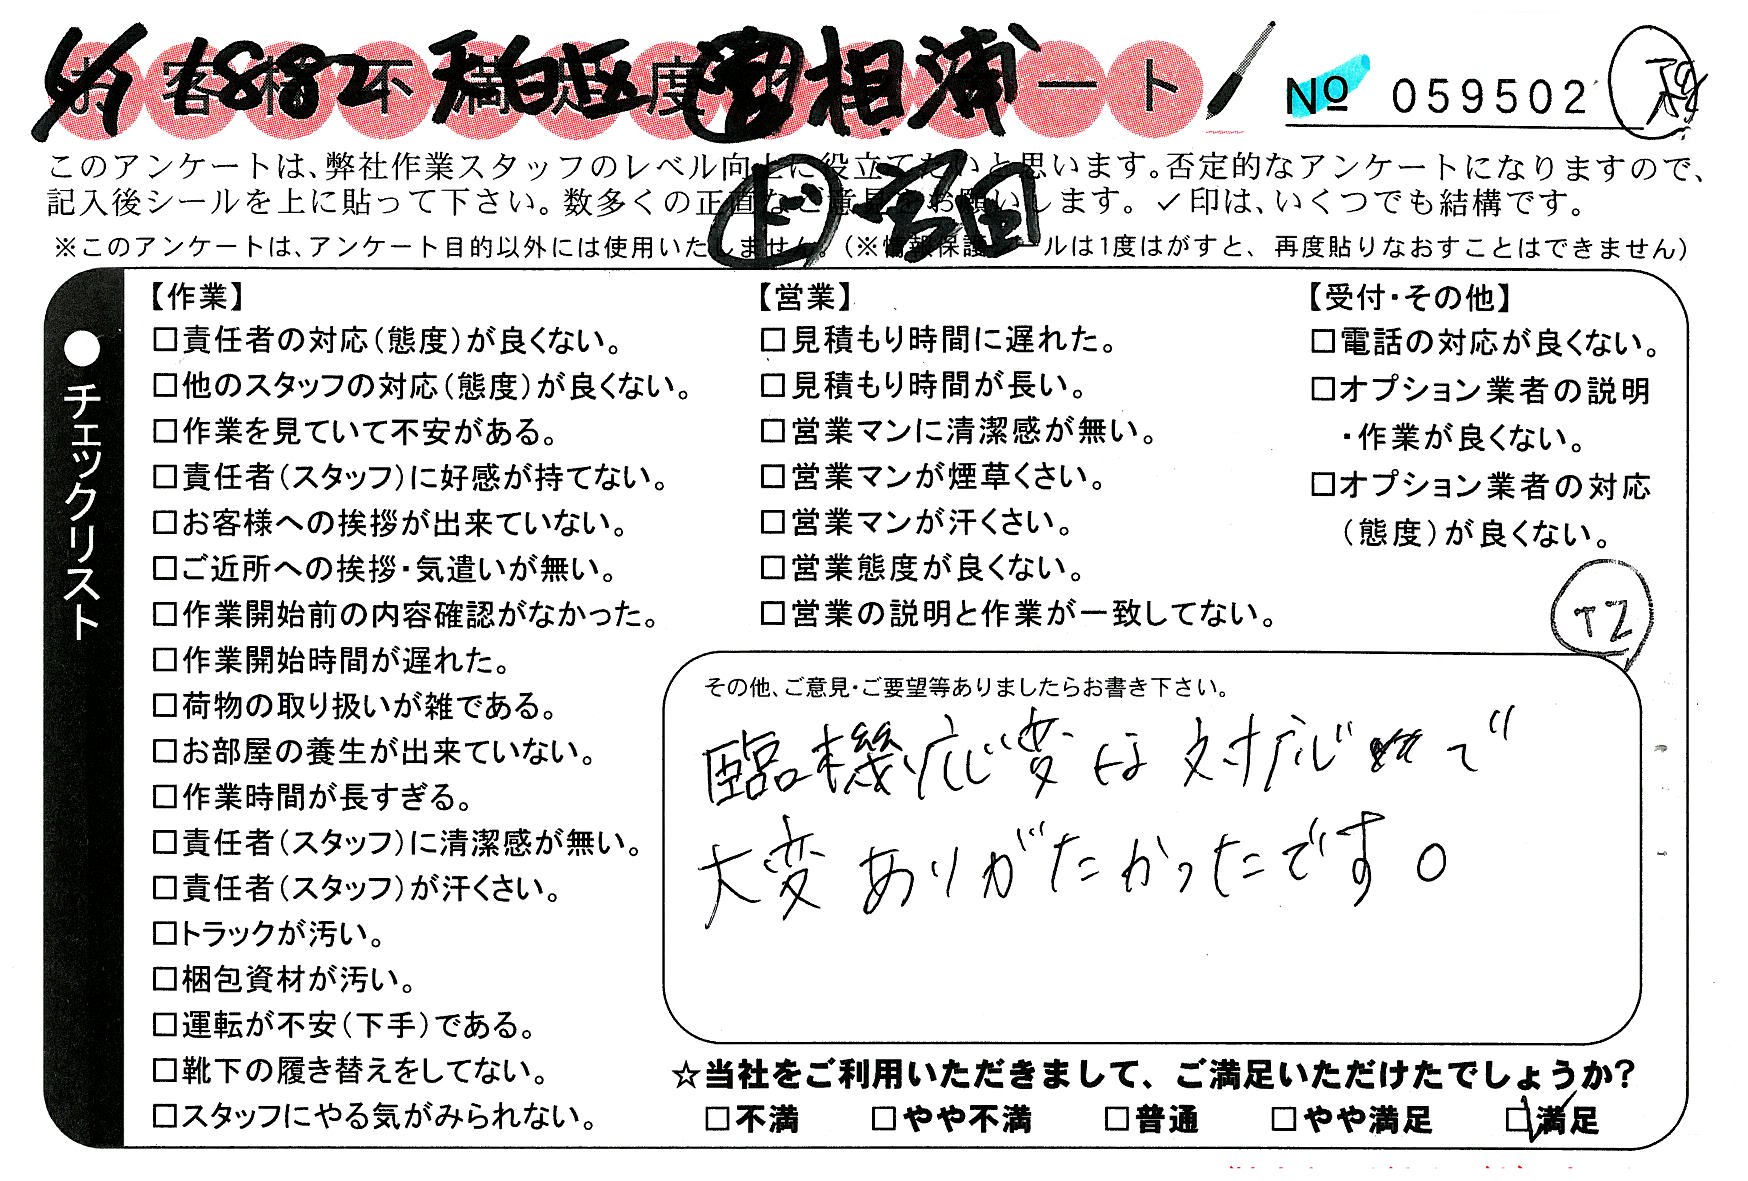 お客様不満足度アンケート
6/1 1882 天白区 営 相浦
ド 宮田
No 059502
このアンケートは、弊社作業スタッフのレベル向上に役立てたいと思います。否定的なアンケートになりますので、
記入後シールを上に貼って下さい。数多くの正直なご意見をお願いします。✓印は、いくつでも結構です。
※このアンケートは、アンケート目的以外には使用いたしません。(※情報保護シールは1度はがすと、再度貼りなおすことはできません)
●チェックリスト
【作業】
□責任者の対応(態度)が良くない。
□他のスタッフの対応(態度)が良くない。
□作業を見ていて不安がある。
□責任者(スタッフ)に好感が持てない。
□お客様への挨拶が出来ていない。
□ご近所への挨拶・気遣いが無い。
□作業開始前の内容確認がなかった。
□作業開始時間が遅れた。
□荷物の取り扱いが雑である。
□お部屋の養生が出来ていない。
□作業時間が長すぎる。
□責任者(スタッフ)に清潔感が無い。
□責任者(スタッフ)が汗くさい。
□トラックが汚い。
□梱包資材が汚い。
□運転が不安(下手)である。
□靴下の履き替えをしてない。
□スタッフにやる気がみられない。
【営業】
□見積もり時間に遅れた。
□見積もり時間が長い。
□営業マンに清潔感が無い。
□営業マンが煙草くさい。
□営業マンが汗くさい。
□営業態度が良くない。
□営業の説明と作業が一致してない。
【受付・その他】
□電話の対応が良くない。
□オプション業者の説明
・作業が良くない。
□オプション業者の対応
(態度)が良くない。
TZ
その他、ご意見・ご要望等ありましたらお書き下さい。
臨機応変な対応で
大変ありがたかったです。
☆当社をご利用いただきまして、ご満足いただけたでしょうか?
□不満 □やや不満 □普通 □やや満足 ☑満足